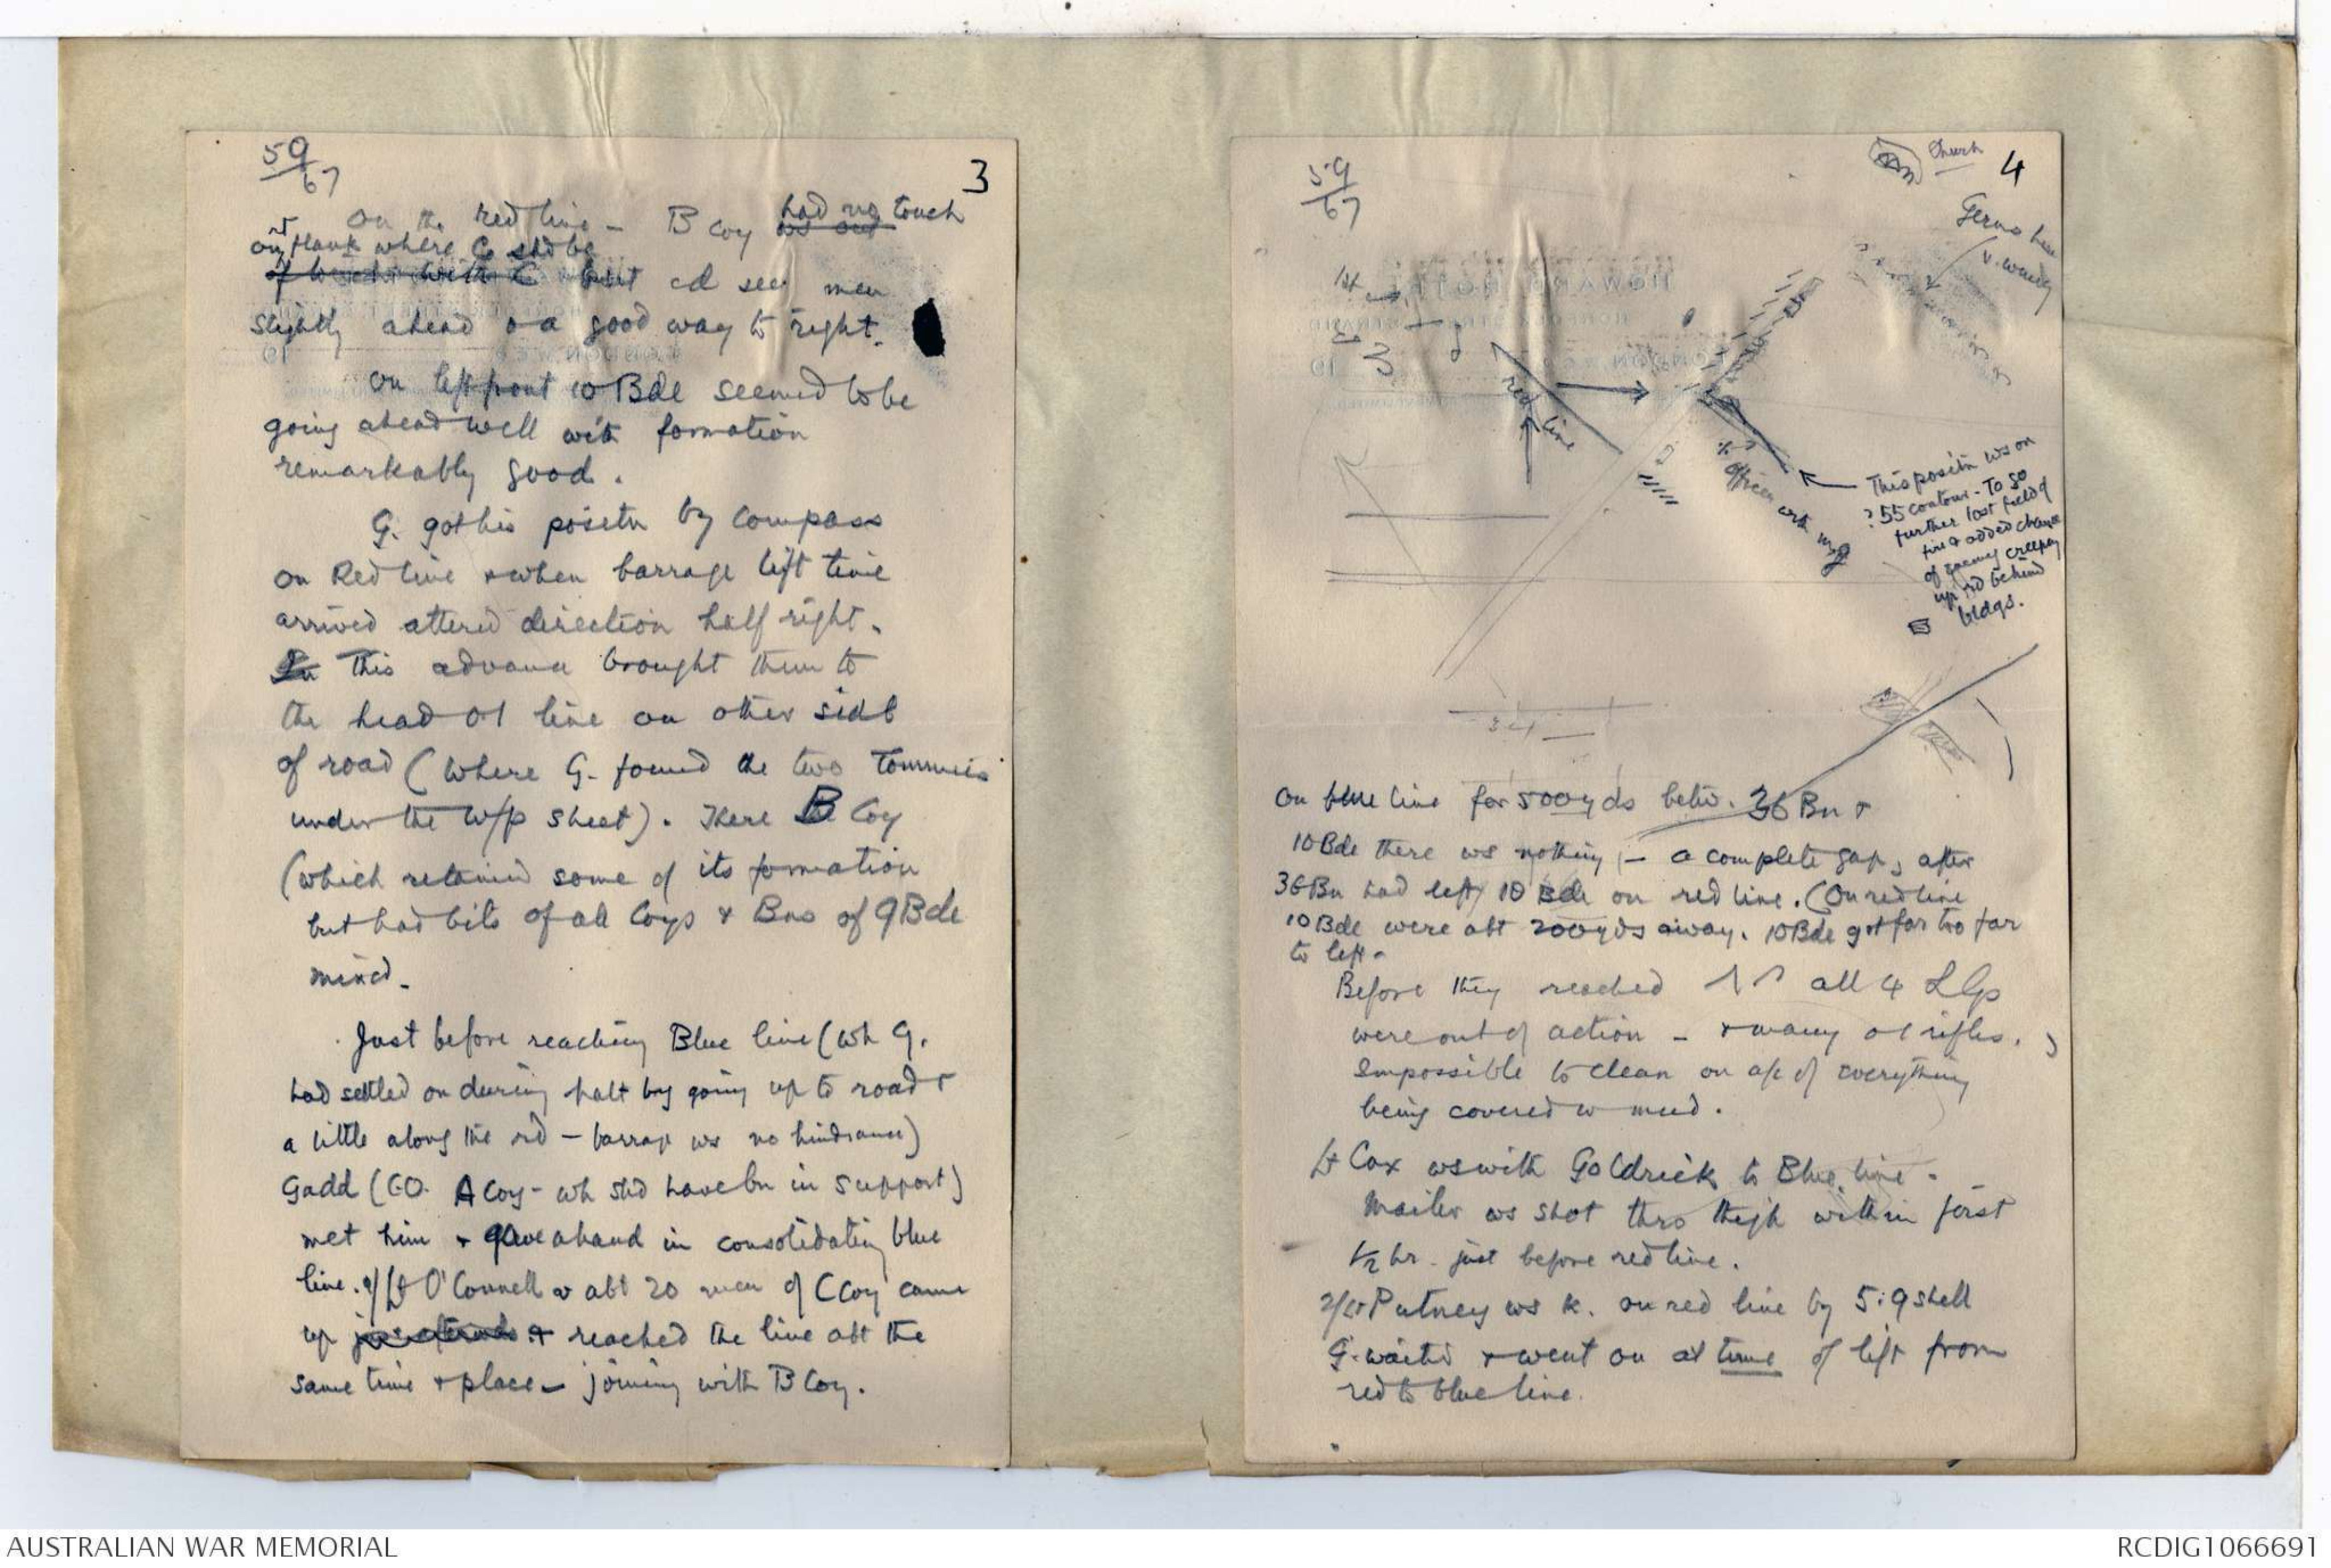 59/67
3
On the red line - B Coy ws out had no touch
on rt flank where C shd be
of touch with C but cd see men
slightly ahead & a good way to right.
On left front 10 Bde seemed to be
going ahead well with formation
remarkably good.
G. got his positn by compass
on Red line & when barrage lift time
arrived altered direction half right.
In This advance brought them to
the head of line on other side
of road (where G. found the two Tommies
under the w/p sheet). There B Coy
(which retained some of its formation
but had bits of all Coys & Bns of 9 Bde
mixed.
Just before reaching Blue line (wh G.
had settled on during halt by going up to road &
a little along the rd - barrage ws no hindrance)
Gadd (C.O. A Coy - wh shd have bn in support)
met him & gave a hand in consolidating blue
line. 2/Lt O'Connell & abt 20 men of C Coy came
up & reached the line abt the
same time & place - joining with B Coy.
59/67
Church
4
Germs here
v. windy
red line
Officer with mg
This positn ws on
? 55 contour - To go
further lost field of
fire & added chance
of enemy creeping
up rd behind
bldgs.
34
On blue line for 500 yds betw. 36 Bn &
10 Bde there ws nothing - a complete gap, after
36 Bn had left 10 Bde on red line. (On red line
10 Bde were abt 200 yds away. 10 Bde got far too far
to left.
Before they reached all 4 LGs
were out of action - & many of rifles.
Impossible to clean on a/c of everything
being covered w mud.
Lt Cox ws with Goldrick to Blue line.
Mailer ws shot thro thigh within first
1/2 hr. just before red line.
2/Lt Putney ws k. on red line by 5.9 shell
G. waited & went on at time of lift from
red to blue line.
AUSTRALIAN WAR MEMORIAL
RCDIG1066691